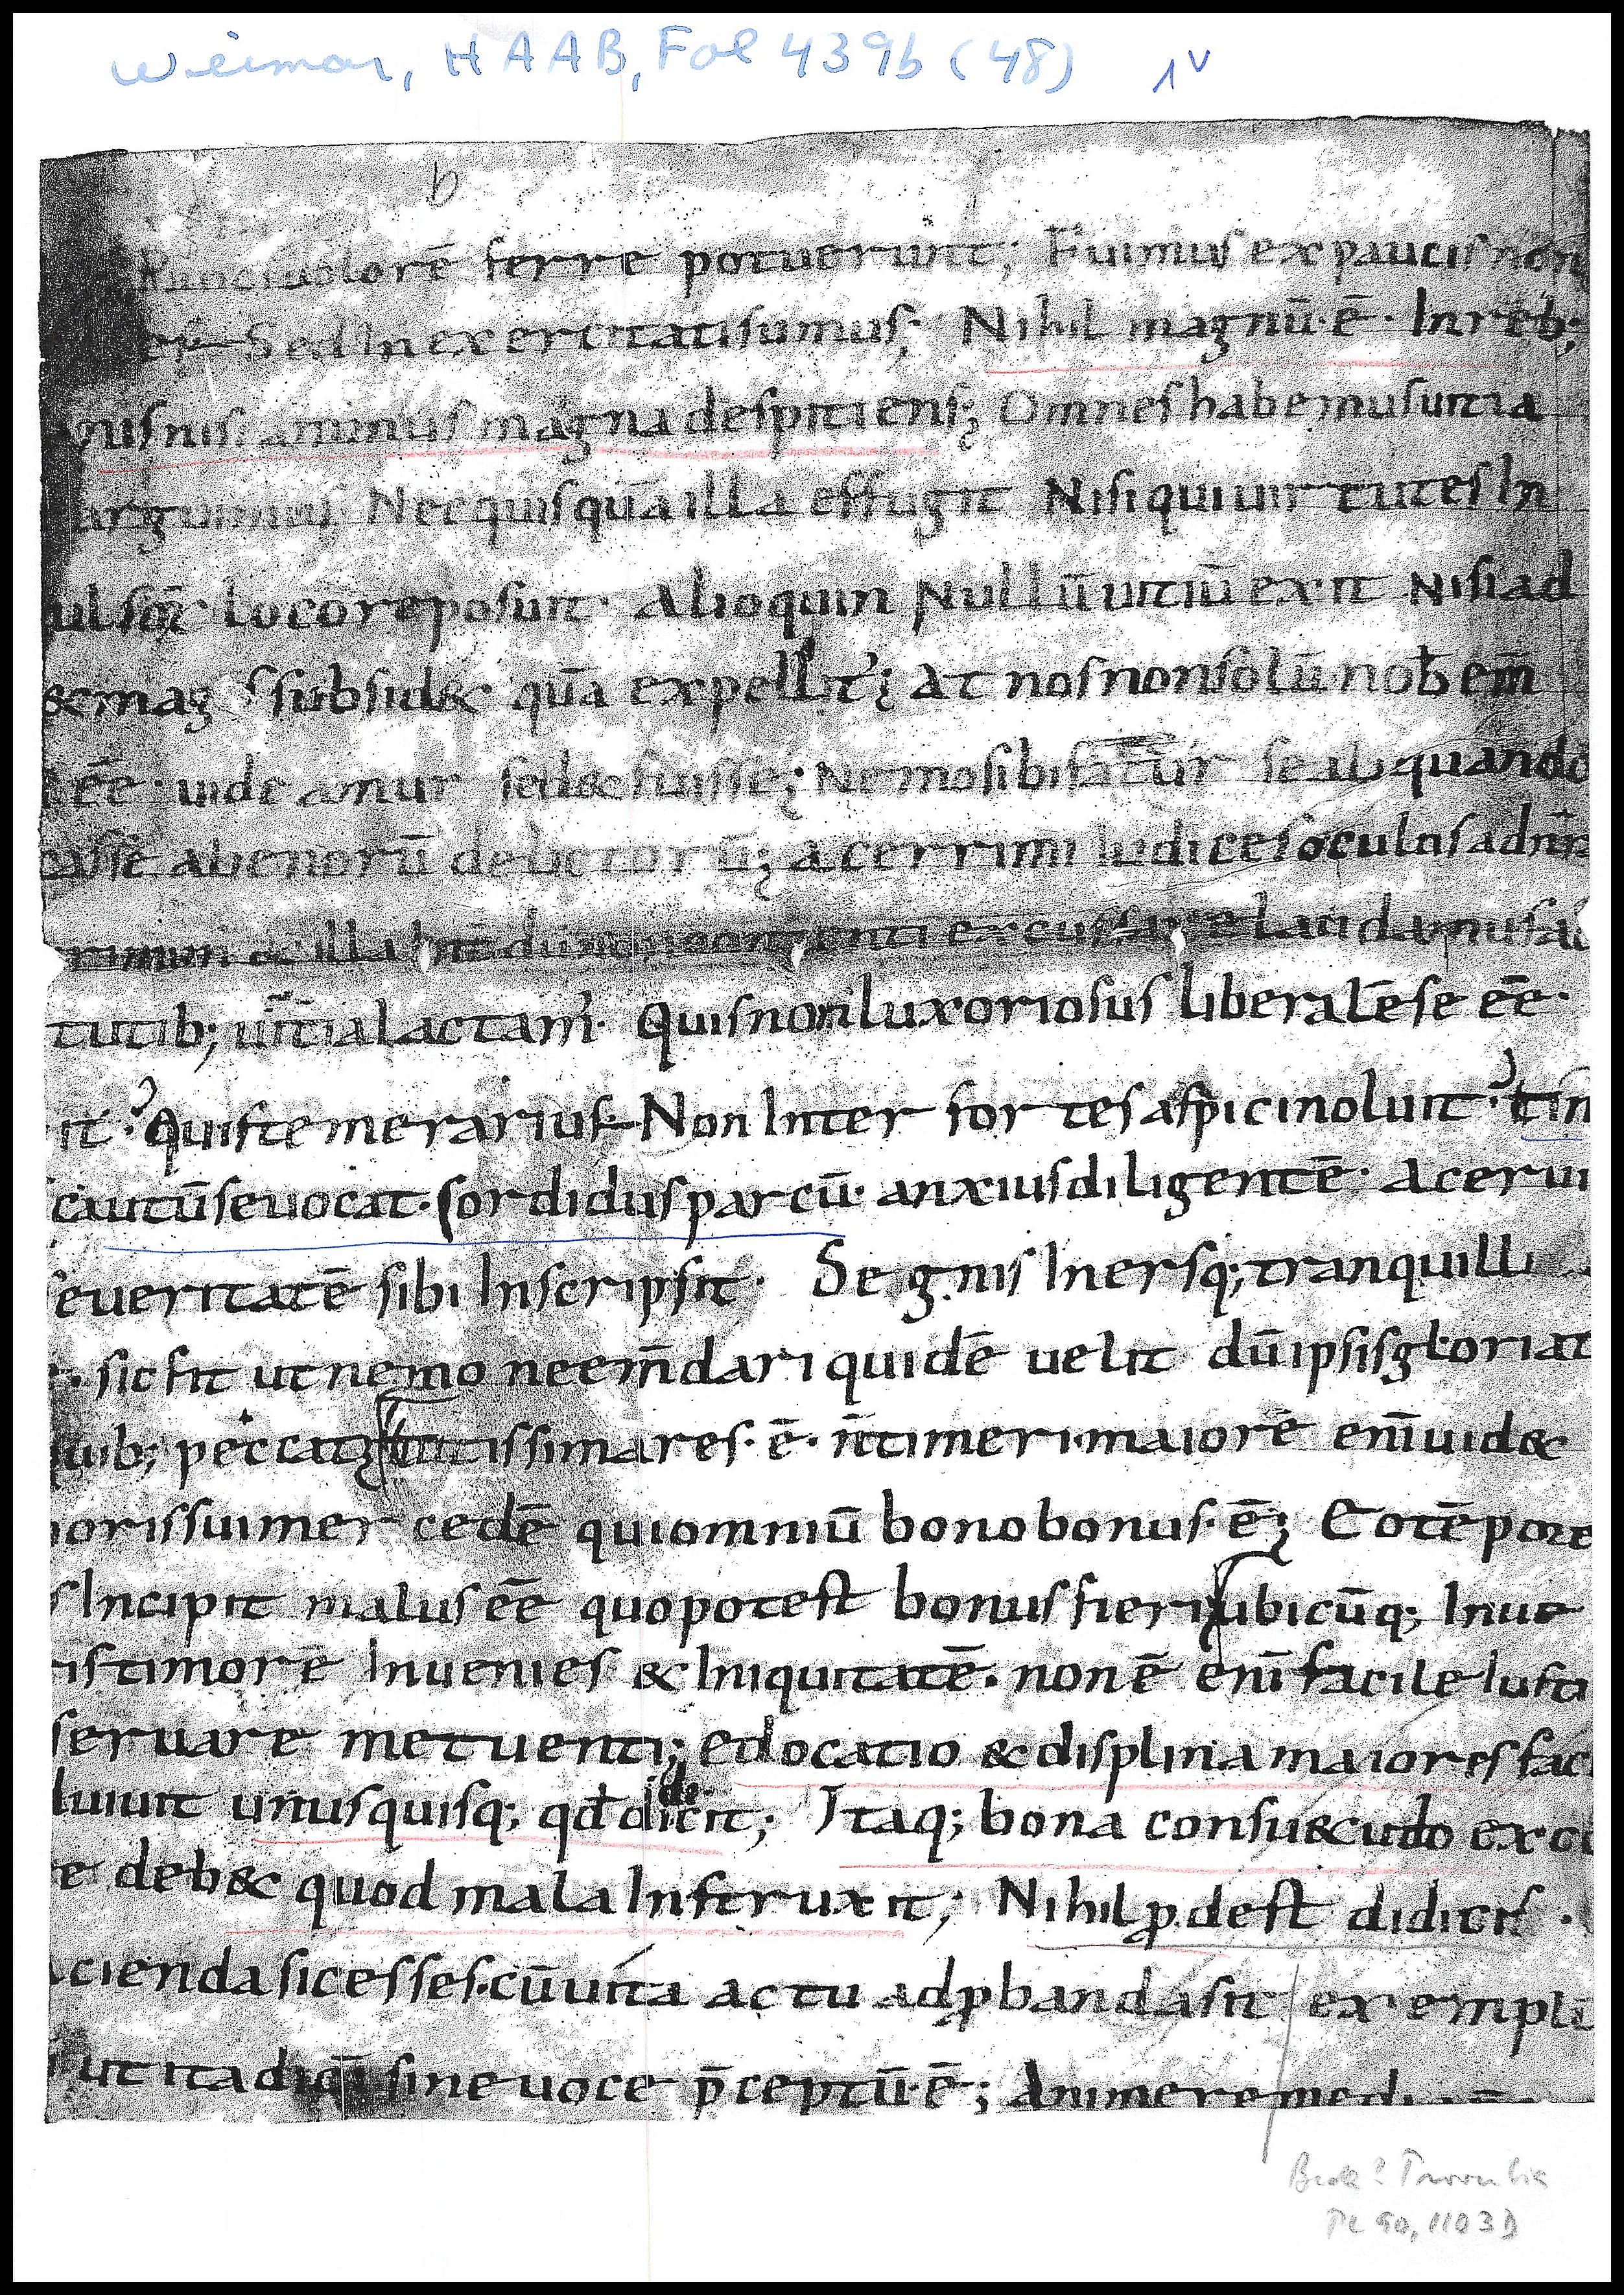 Weimar, HAAB, Fol 439b (48) 1v
b
dolorē ferre potuerunt; Fuimus ex paucis non
Sed In exercitati sumus; Nihil magnū·ē· In reb;
nisi animus magna despitiens; Omnes habemus uitia
arguimus Nec quisquā illa effugit Nisi qui uirtutes In
loco reposuit· Alioquin Nullū uitiū exit Nisi ad
&mag subsid& quā expellit'; At nos non solū nob
ēē· uideamur sed& fuisse; Nemo sibi fatur se aliquando
alienorū delictorū; acerrimi Iudices oculos
& illa excusare laudamus
tutib; uitia lactam· Quis non luxoriosus liberalē se ēē·
it· Quis temerarius Non Inter fortes aspici noluit· tim
cautū se uocat· sordidus parcū· anxius diligentē· acerui
seueritatē sibi Inscripsit· Segnis Inersq; tranquilli
· sic fit ut nemo neem̄dari quidē uelit dū ipsis gloriat
uib; peccat tutissima res·ē· n̄ timeri· maiorē enī uid&
morissui mercedē qui omniū bono bonus·ē; Eo tēpore
s Incipit malus ēē quo potest bonus fieri ubicūq; Inue
ris timorē Inuenies & Iniquitatē· non ē enī facile Iusti
seruare metuenti; edocatio & displina maiores fac
luiuit unusquisq; qd didicit; Itaq; bona consu&udo exc
e deb& quod mala Instruxit; Nihil p̱dest didicis·
cienda si cesses· cū uita actu adp̱banda sit exempli
ut ita diquā sine uoce p̄ceptū·ē; Anime remedi
Beda? Proverbia
PL 90, 1103 D